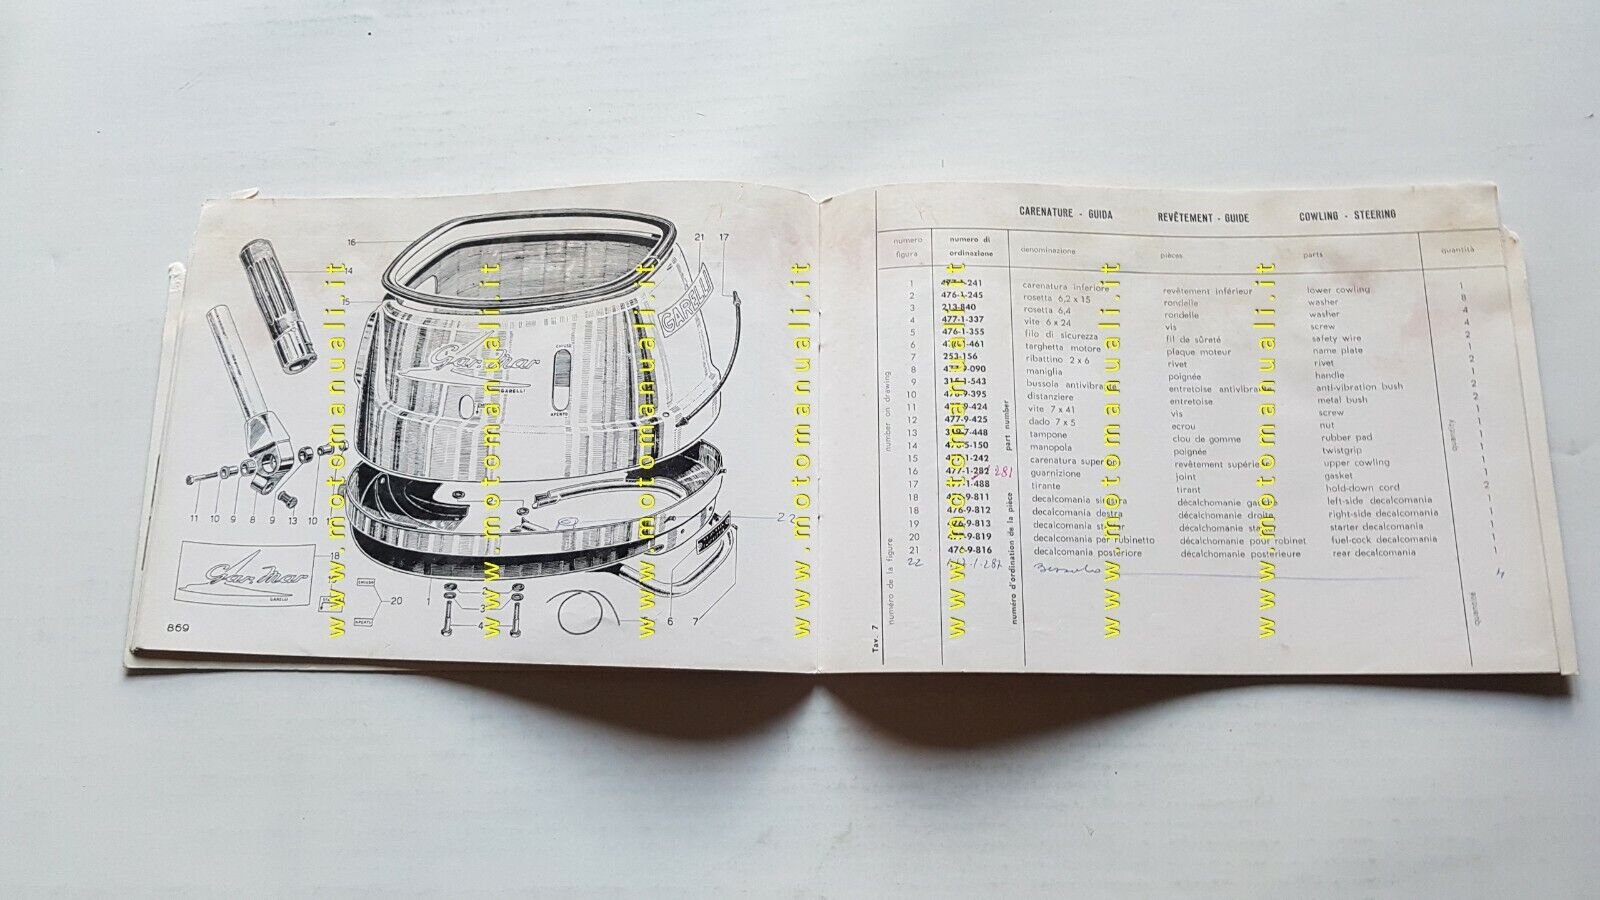 16
21 17
14
15
GARELLI
Gar Mar
GARELLI
CHIUSO
APERTO
2
22
11 10 9 8 9 13 10
18
Gar Mar
GARELLI
CHIUSO
20
APERTO
1
3
4
5 6 7
869
www.motomanuali.it
www.motomanuali.it
www.motomanuali.it
www.motomanuali.it
www.motomanuali.it
www.motomanuali.it
www.motomanuali.it
CARENATURE - GUIDA REVÊTEMENT - GUIDE COWLING - STEERING
numero figura numero di ordinazione denominazione pièces parts quantità
1 241 carenatura inferiore revêtement inférieur lower cowling 1
2 476-1-245 rosetta 6,2 x 15 rondelle washer 8
3 213-840 rosetta 6,4 rondelle washer 4
4 477-1-337 vite 6 x 24 vis screw 4
5 476-1-355 filo di sicurezza fil de sûreté safety wire 2
6 461 targhetta motore plaque moteur name plate 1
7 253-156 ribattino 2 x 6 rivet rivet 2
8 090 maniglia poignée handle 1
9 543 bussola antivibrante entretoise antivibrante anti-vibration bush 2
10 395 distanziere entretoise metal bush 2
11 424 vite 7 x 41 vis screw 1
12 477-9-425 dado 7 x 5 ecrou nut 1
13 448 tampone clou de gomme rubber pad 1
14 150 manopola poignée twistgrip 1
15 242 carenatura superiore revêtement supérieur upper cowling 1
16 477-1-282 281 guarnizione joint gasket 1
17 488 tirante tirant hold-down cord 2
18 811 decalcomania sinistra décalchomanie gauche left-side decalcomania 1
18 476-9-812 decalcomania destra décalchomanie droite right-side decalcomania 1
19 476-9-813 decalcomania starter décalchomanie starter starter decalcomania 1
20 819 decalcomania per rubinetto décalchomanie pour robinet fuel-cock decalcomania 1
21 476-9-816 decalcomania posteriore décalchomanie posterieure rear decalcomania 1
22 4
number on drawing
numéro de la figure
part number
numéro d'ordination de la pièce
quantity
quantité
Tav. 7